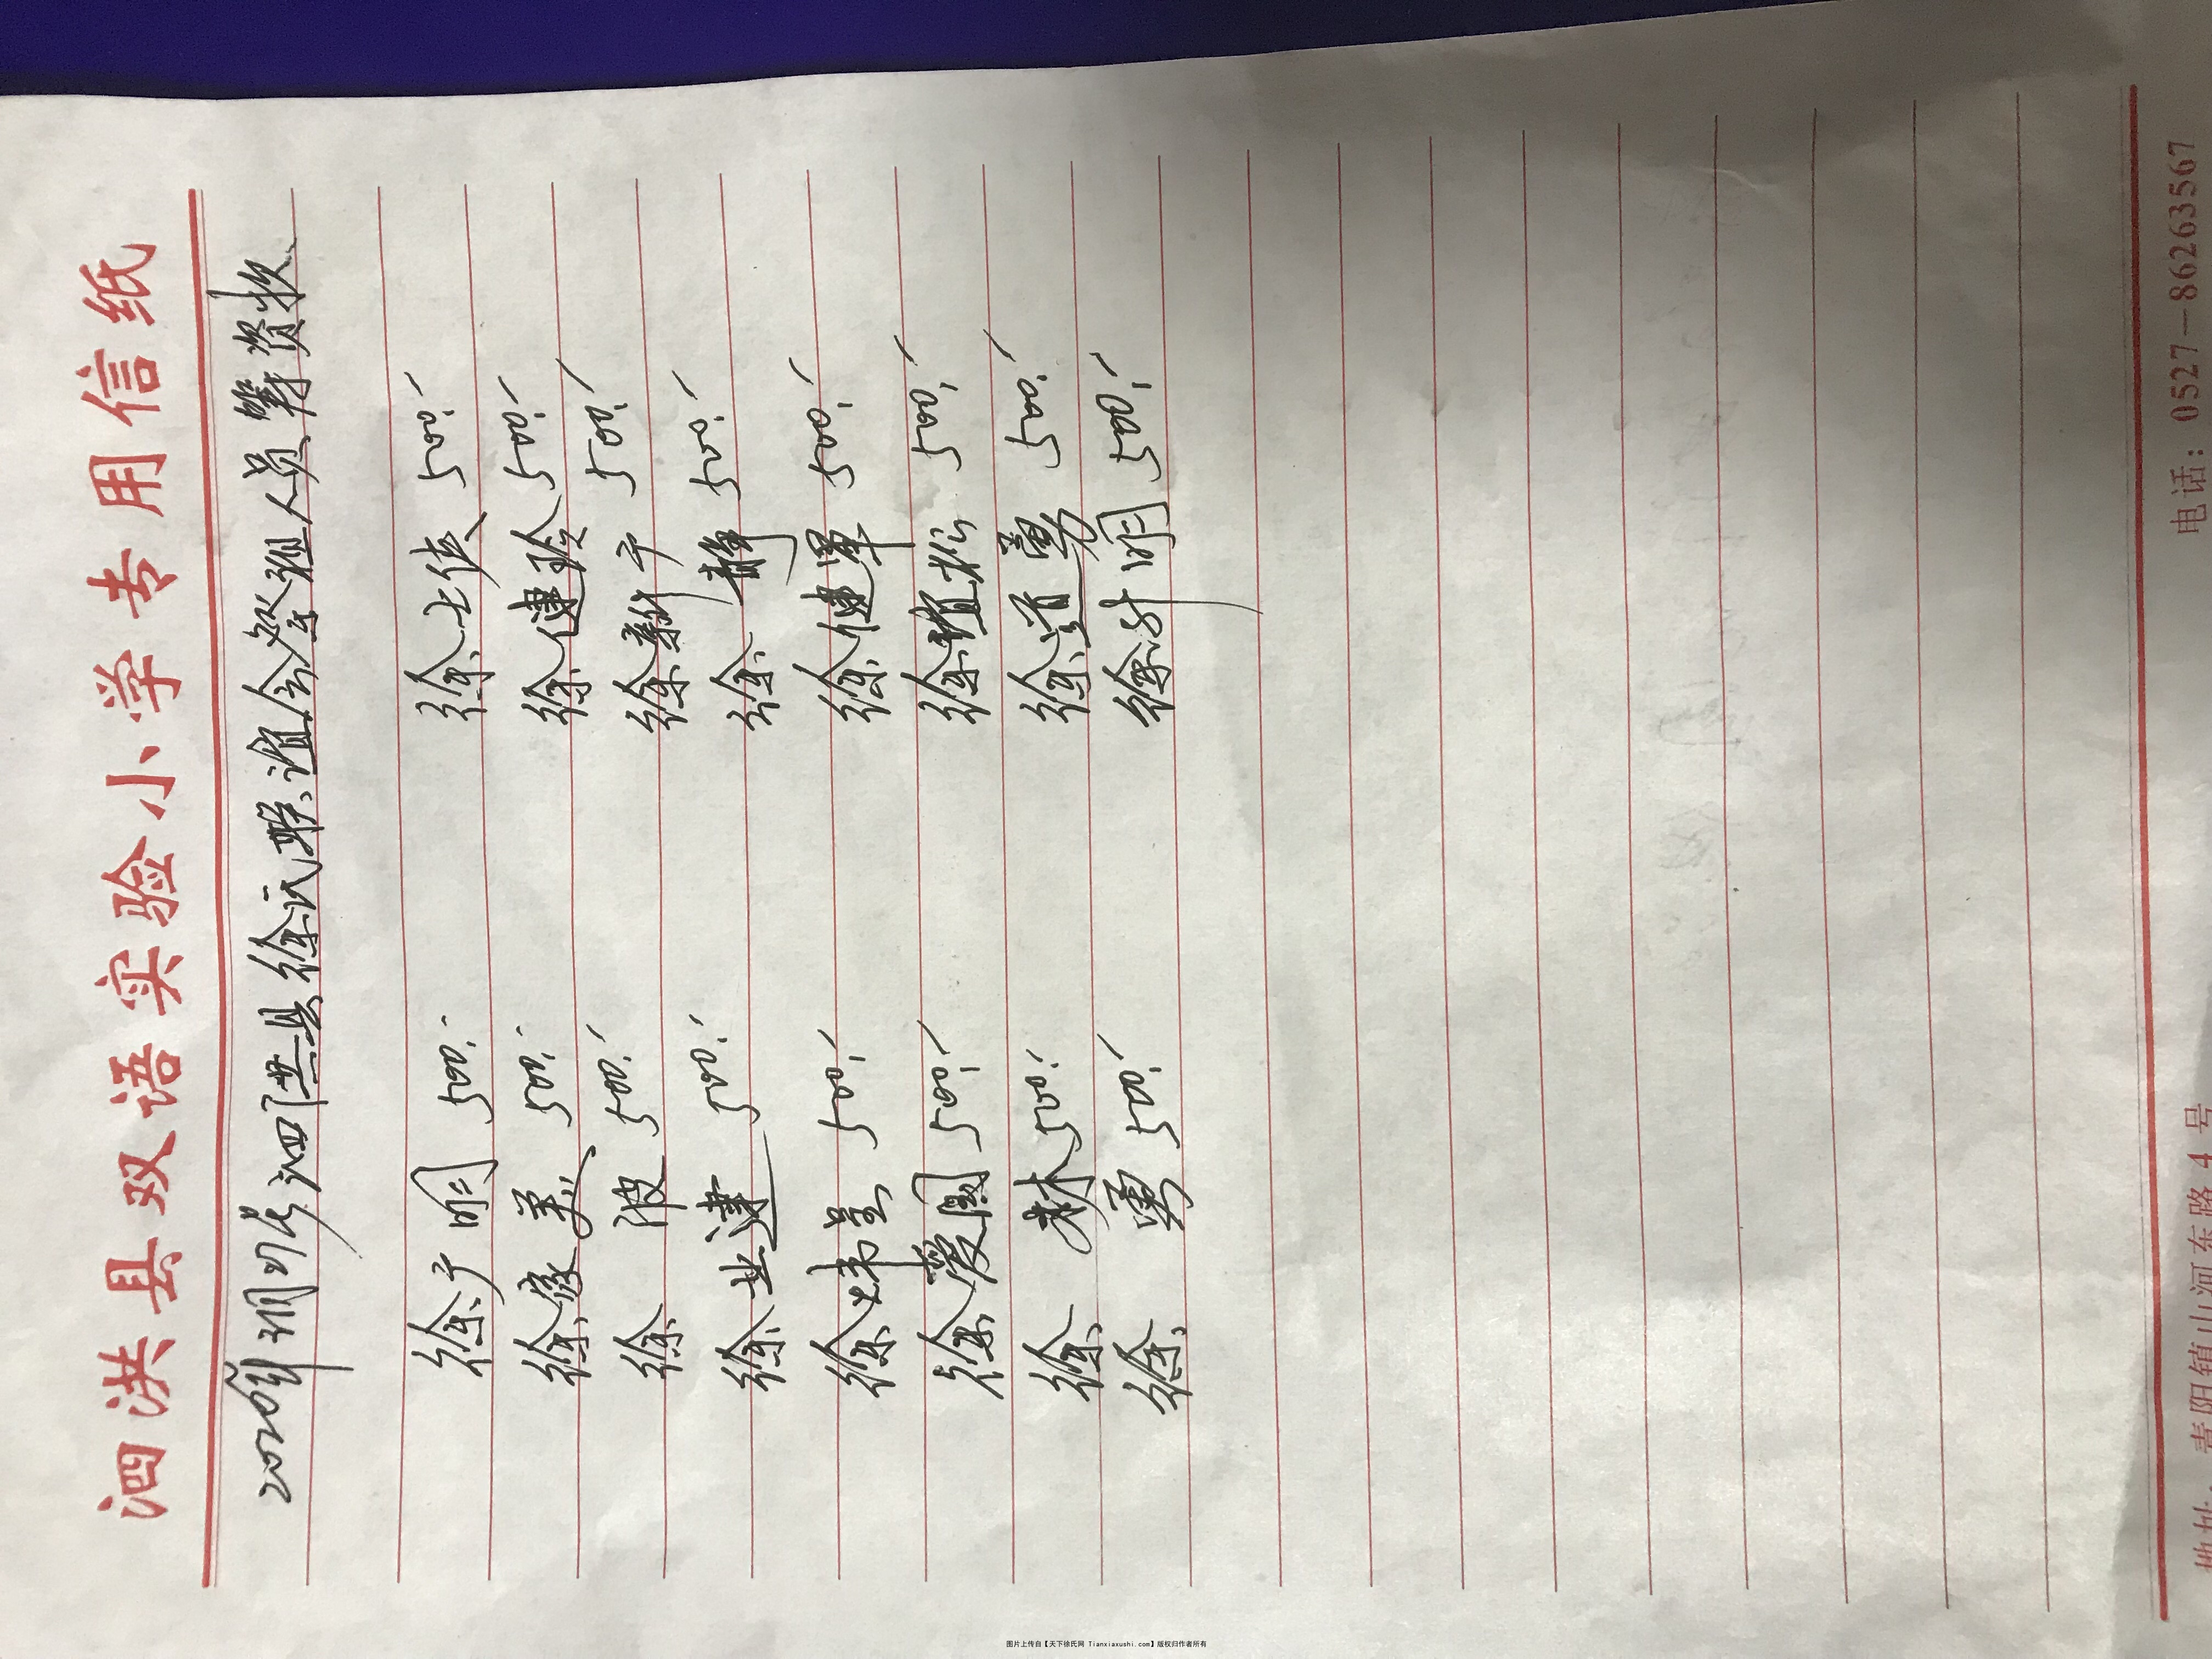 泗洪县双语实验小学专用信纸
2020年3月29号泗洪县徐氏联谊会祭祖人员筹资收
徐广明 500. 徐士侠 500.
徐家美 500. 徐健玲 500.
徐波 500. 徐新宇 500.
徐业建 500. 徐静 500.
徐炜呈 500. 徐健军 500.
徐爱国 500. 徐植松 500.
徐林 500. 徐道勇 500.
徐勇 500. 徐计明 500.
地址：青阳镇山河东路4号 电话：0527－86263567
图片上传自【天下徐氏网 Tianxiaxushi.com】版权归作者所有